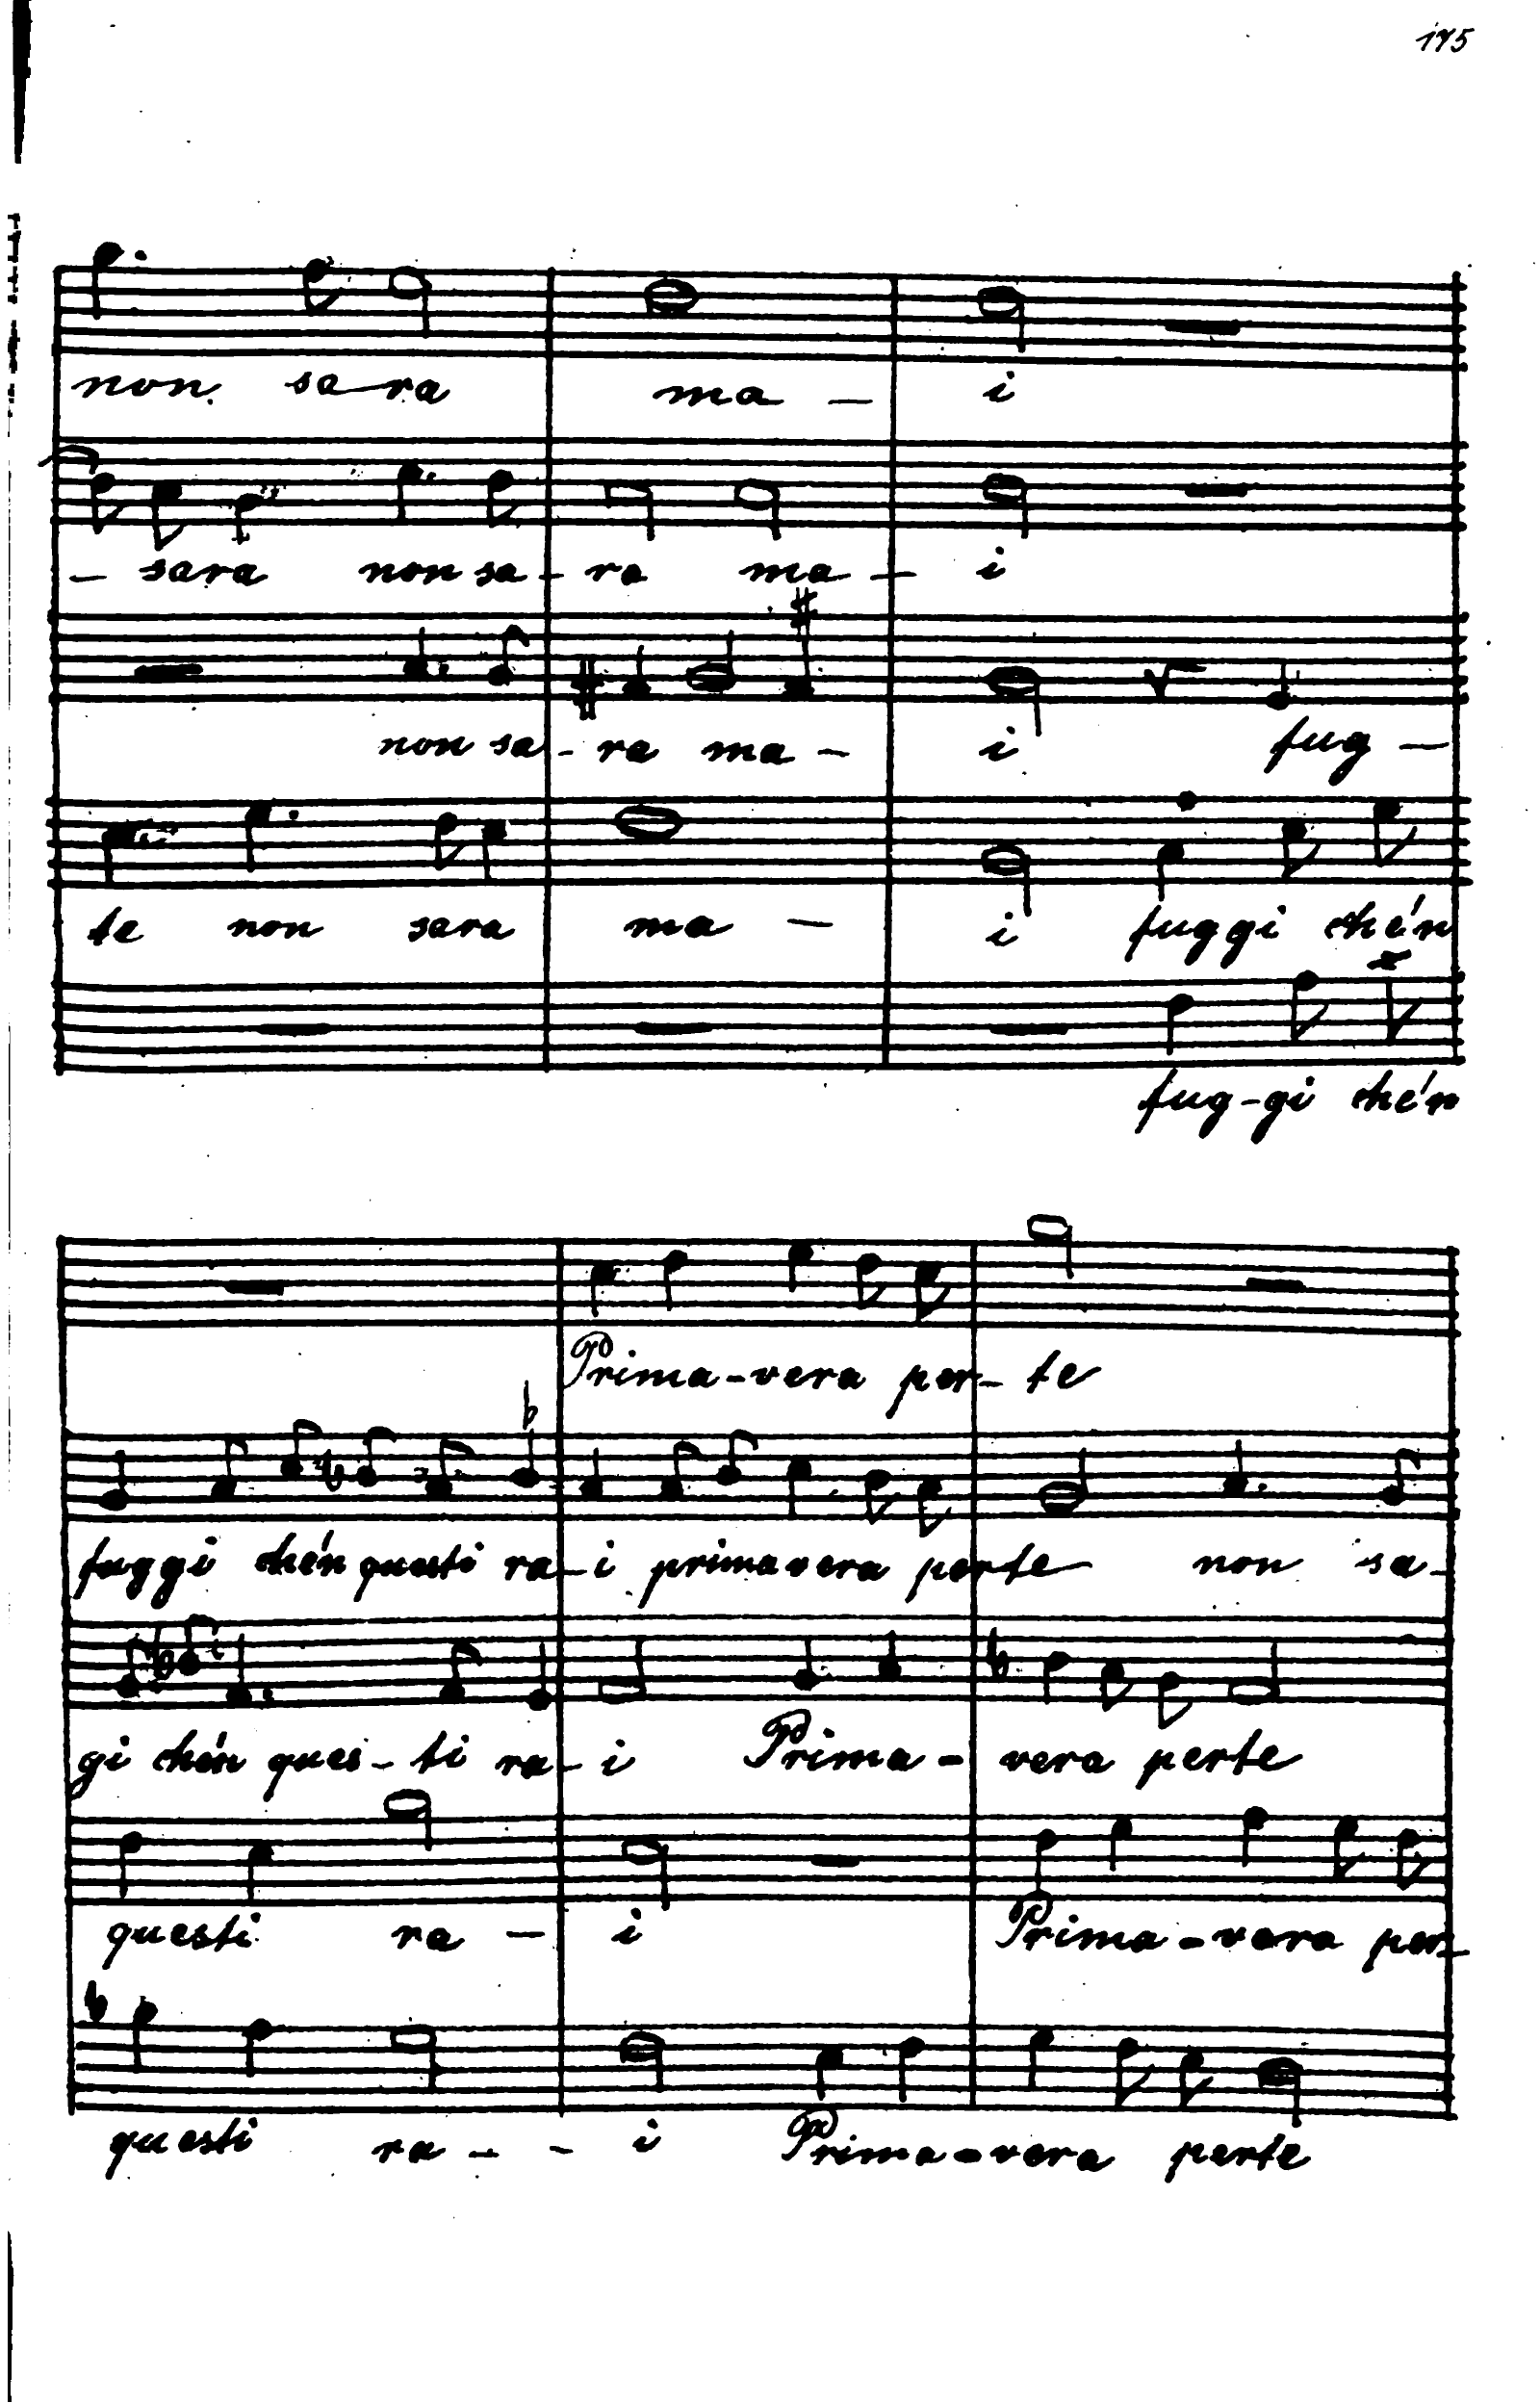 175
non sa-ra ma - i
- sara non sa - ra ma - i
non sa - ra ma - i fug -
te non sara ma - i fuggi ché'n
fug-gi ché'n
Prima-vera per- te
fuggi ché'n questi ra-i primavera perte non sa-
gi ché'n ques-ti ra-i Prima-vera perte
questi ra - i Prima-vera per-
questi ra - - i Prima-vera perte